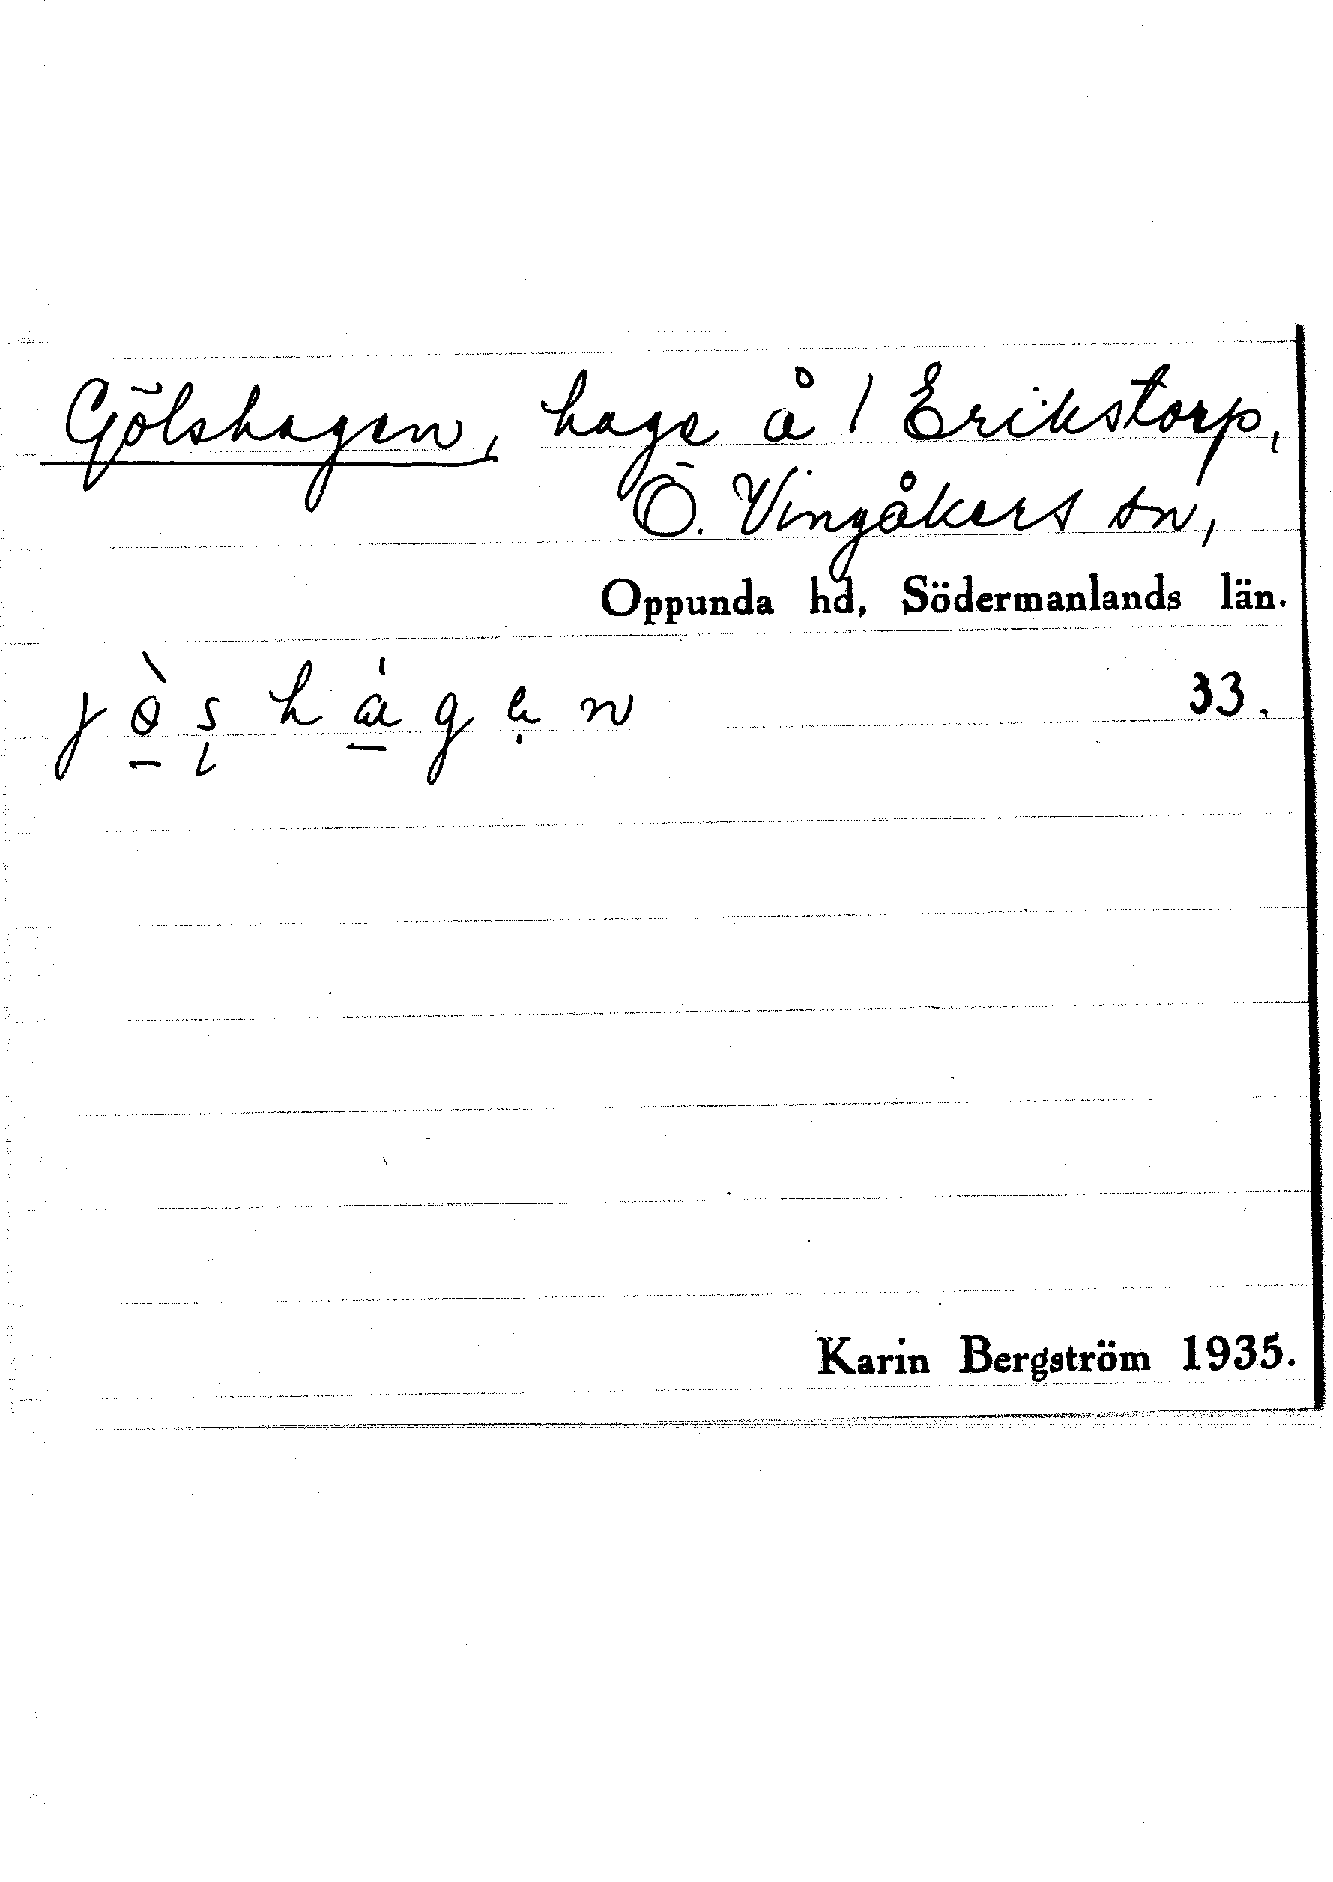 Gölshagen, hage å / Erikstorp,
Ö. Vingåkers sn,
Oppunda hd, Södermanlands län.
jö̀ʂhágen 33.
Karin Bergström 1935.